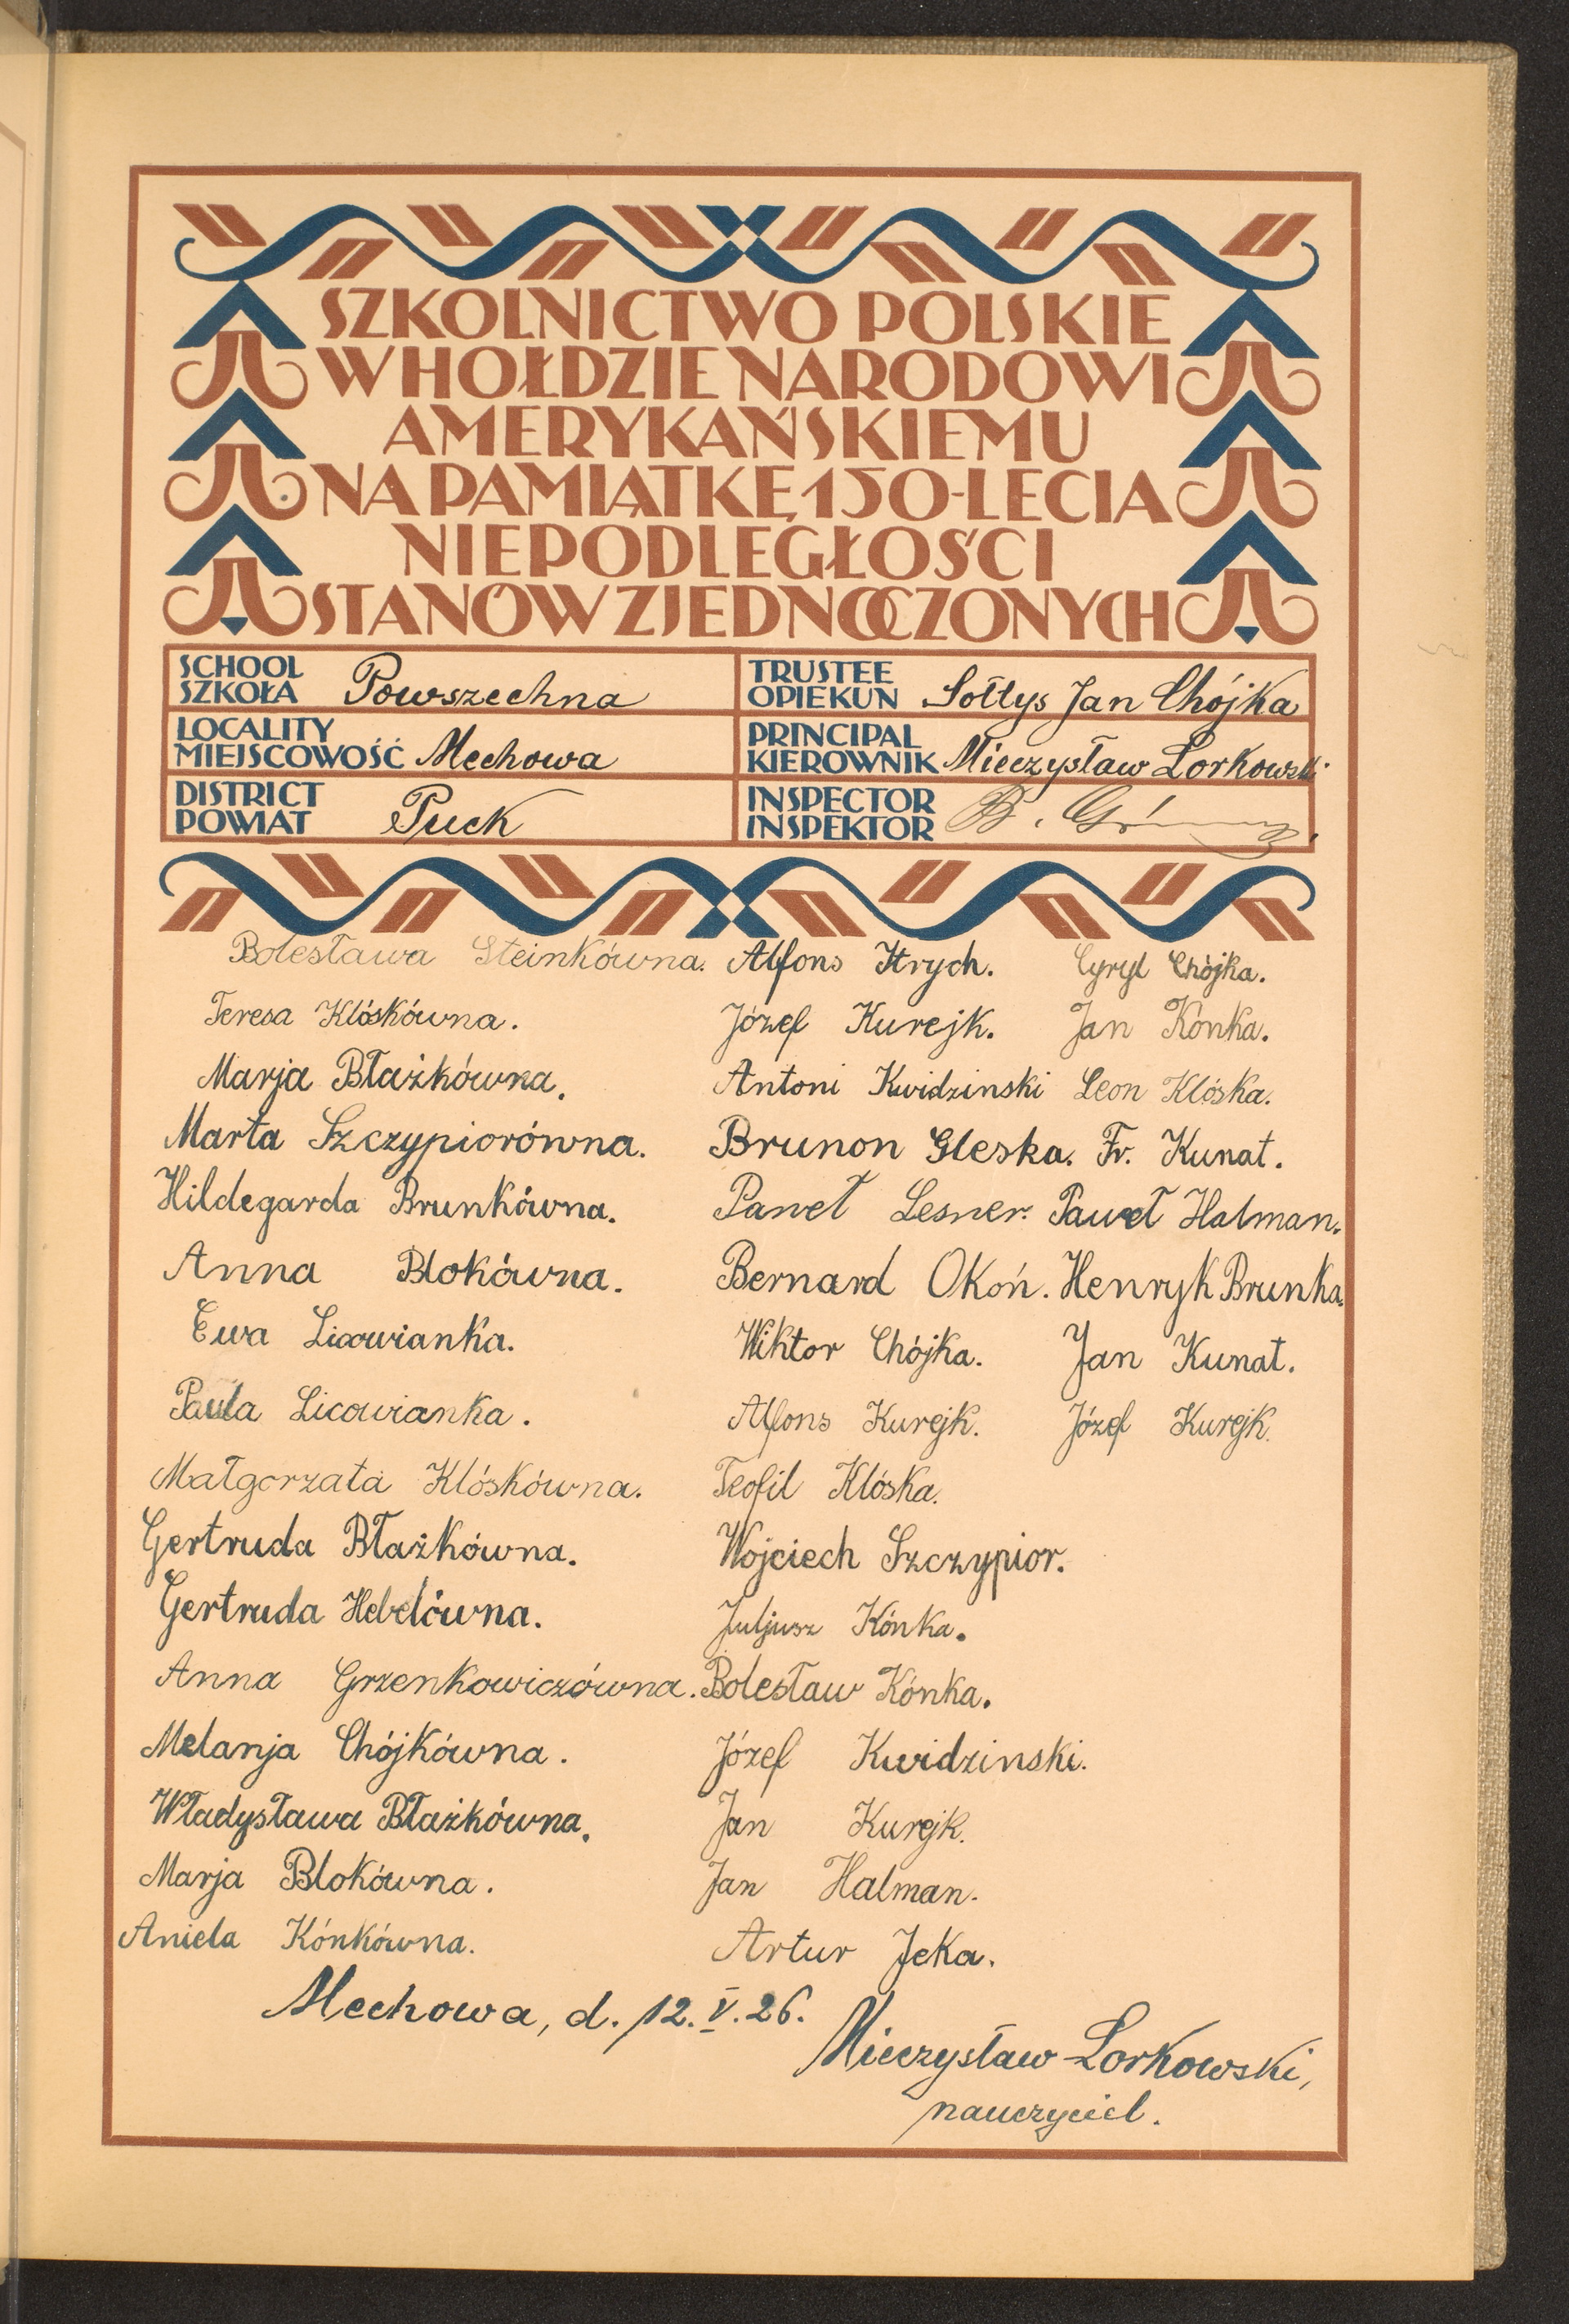 SZKOLNICTWO POLSKIE
W HOŁDZIE NARODOWI
AMERYKAŃSKIEMU
NA PAMIĄTKĘ 150-LECIA
NIEPODLEGŁOŚCI
STANÓW ZJEDNOCZONYCH
SCHOOL
SZKOŁA Powszechna
TRUSTEE
OPIEKUN Sołtys Jan Chójka
LOCALITY
MIEJSCOWOŚĆ Mechowa
PRINCIPAL
KIEROWNIK Mieczysław Lorkowski
DISTRICT
POWIAT Puck
INSPECTOR
INSPEKTOR B.
Bolesława Steinkówna. Alfons Hrych. Cyryl Chójka.
Teresa Klóskówna. Józef Kurejk. Jan Kónka.
Marja Błażkówna. Antoni Kwidzinski Leon Klóska.
Marta Szczypiorówna. Brunon Gleska. Fr. Kunat.
Hildegarda Brunkówna. Paweł Lesner. Paweł Halman.
Anna Blokówna. Bernard Okoń. Henryk Brunka.
Ewa Licowianka. Wiktor Chójka. Jan Kunat.
Paula Licowianka. Alfons Kurejk. Józef Kurejk.
Małgorzata Klóskówna. Teofil Klóska.
Gertruda Błażkówna. Wojciech Szczypior.
Gertruda Hebelówna. Juljusz Kónka.
Anna Grzenkowiczówna. Bolesław Kónka.
Melanja Chójkówna. Józef Kwidzinski.
Władysława Błażkówna. Jan Kurejk.
Marja Blokówna. Jan Halman.
Aniela Kónkówna. Artur Jeka.
Mechowa, d. 12. V. 26.
Mieczysław Lorkowski,
nauczyciel.